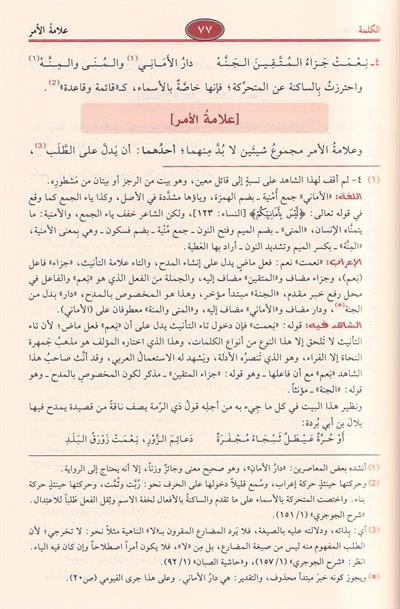 الكلمة ٧٧ علامة الأمر
٤ـ نِعْمَتْ جَزاءُ المُتَّقِينَ الجَنَّهْ دارُ الأَمَانِي(١) والمُنَى والمِنَّهْ(١)
واحترزتُ بالساكنة عن المتحرّكة؛ فإنها خاصَّةٌ بالأسماء، كـ«قائمة وقاعدة»(٢).
[علامةُ الأمر]
وعلامةُ الأمر مجموعُ شيئَين لا بُدَّ منهما؛ أحدُهما: أن يَدلَّ على الطَّلَب(٣)،
(١) ٤ـ لم أقف لهذا الشاهد على نسبةٍ إلى قائل معين، وهو بيت من الرجز أو بيتان من مشطوره.
اللغة: «الأماني» جمع أُمنية ـ بضم الهمزة، وياؤها مشدَّدة في الأصل، وكذا ياء الجمع كما وقع
في قوله تعالى: ﴿لَيْسَ بِأَمَانِيِّكُمْ﴾ [النساء: ١٢٣]، ولكن الشاعر خفف ياء الجمع، والأمنية: ما
يتمنَّاه الإنسان، «المنى» ـ بضم الميم وفتح النون ـ جمع مُنْية ـ بضم فسكون ـ وهي بمعنى الأمنية،
«المِنَّة» ـ بكسر الميم وتشديد النون ـ أراد بها العَطِية.
الإعراب: «نعمت» نعم: فعل ماضٍ يدل على إنشاء المدح، والتاء علامة التأنيث، «جزاء» فاعل
(نِعم)، وجزاء مضاف و«المتقين» مضاف إليه، والجملة من الفعل الذي هو «نِعم» والفاعل في
محل رفع خبر مقدم، «الجنة» مبتدأ مؤخر، وهذا هو المخصوص بالمدح، «دار» بَدل من
الجنة(٥)، ودار مضاف و«الأماني» مضاف إليه، «والمنى والمنة» معطوفان على (الأماني).
الشاهد فيه: قوله: «نِعمت» فإن دخول تاء التأنيث يدل على أن «نِعم» فعل ماضٍ؛ لأن تاء
التأنيث لا تَلحق إلا هذا النوع من أنواع الكلمات، وهذا الذي اختاره المؤلف هو مذهبُ جَمهرة
النحاة إلا الفراء، وهو الذي تَنصرُه الأدلة، ويَشهد له الاستعمالُ العربي، وقد أنَّث صاحبُ هذا
الشاهد «نِعم» مع أن فاعلها ـ وهو قوله: «جزاء المتقين» ـ مذكر لكون المَخصوص بالمدح ـ وهو
قوله: «الجنة» ـ مؤنثاً.
ونظير هذا البيت في كل ما جِيء به من أجلِه قولُ ذي الرمة يصف ناقةً من قصيدة يمدح فيها
بلالَ بن أبي بُردة:
أَوْ حُرَّةٌ عَيْطَلٌ ثَبْجَاءُ مُجْفَرَةٌ دَعائِمَ الزَّوْرِ، نِعْمَتْ زَوْرَقُ البَلَدِ
(١) أنشده بعض المعاصرين: «دارُ الأمانِ»، وهو صحيح معنى وجائزٌ وزناً، إلا أنه يحتاج إلى الرواية.
(٢) وحركتها حينئذٍ حركة إعراب، وسُمع قليلاً دخولها على الحرف نحو: رُبَّت وثُمَّت، وحركتها حينئذٍ حركة
بناء. واختصت المتحركة بالأسماء على ما تقدم والساكنةُ بالأفعال لخفة الاسم وثِقل الفعل طلَباً للاعتِدال.
«شرح الجوجري» (١/١٥١)
(٣) أي: بِذاته، ودلالته عليه بالصيغة، فلا يَرد المضارع المقرون بـ«لا» الناهية مثلاً نحو: لا تخرجي؛ لأن
الطلب المفهوم منه ليس من صيغة المضارع، بل مِن «لا»، فلا يكون أمراً اصطلاحاً وإن كان فيه الياء.
انظر: «شرح الجوجري» (١/١٥٧)، و«حاشية الصبان» (١/٩٢).
(٥) ويجوز كونه خبرَ مبتدأ محذوف، والتقدير: هي دارُ الأماني. وعلى هذا جرى الفيومي (ص٢٠).